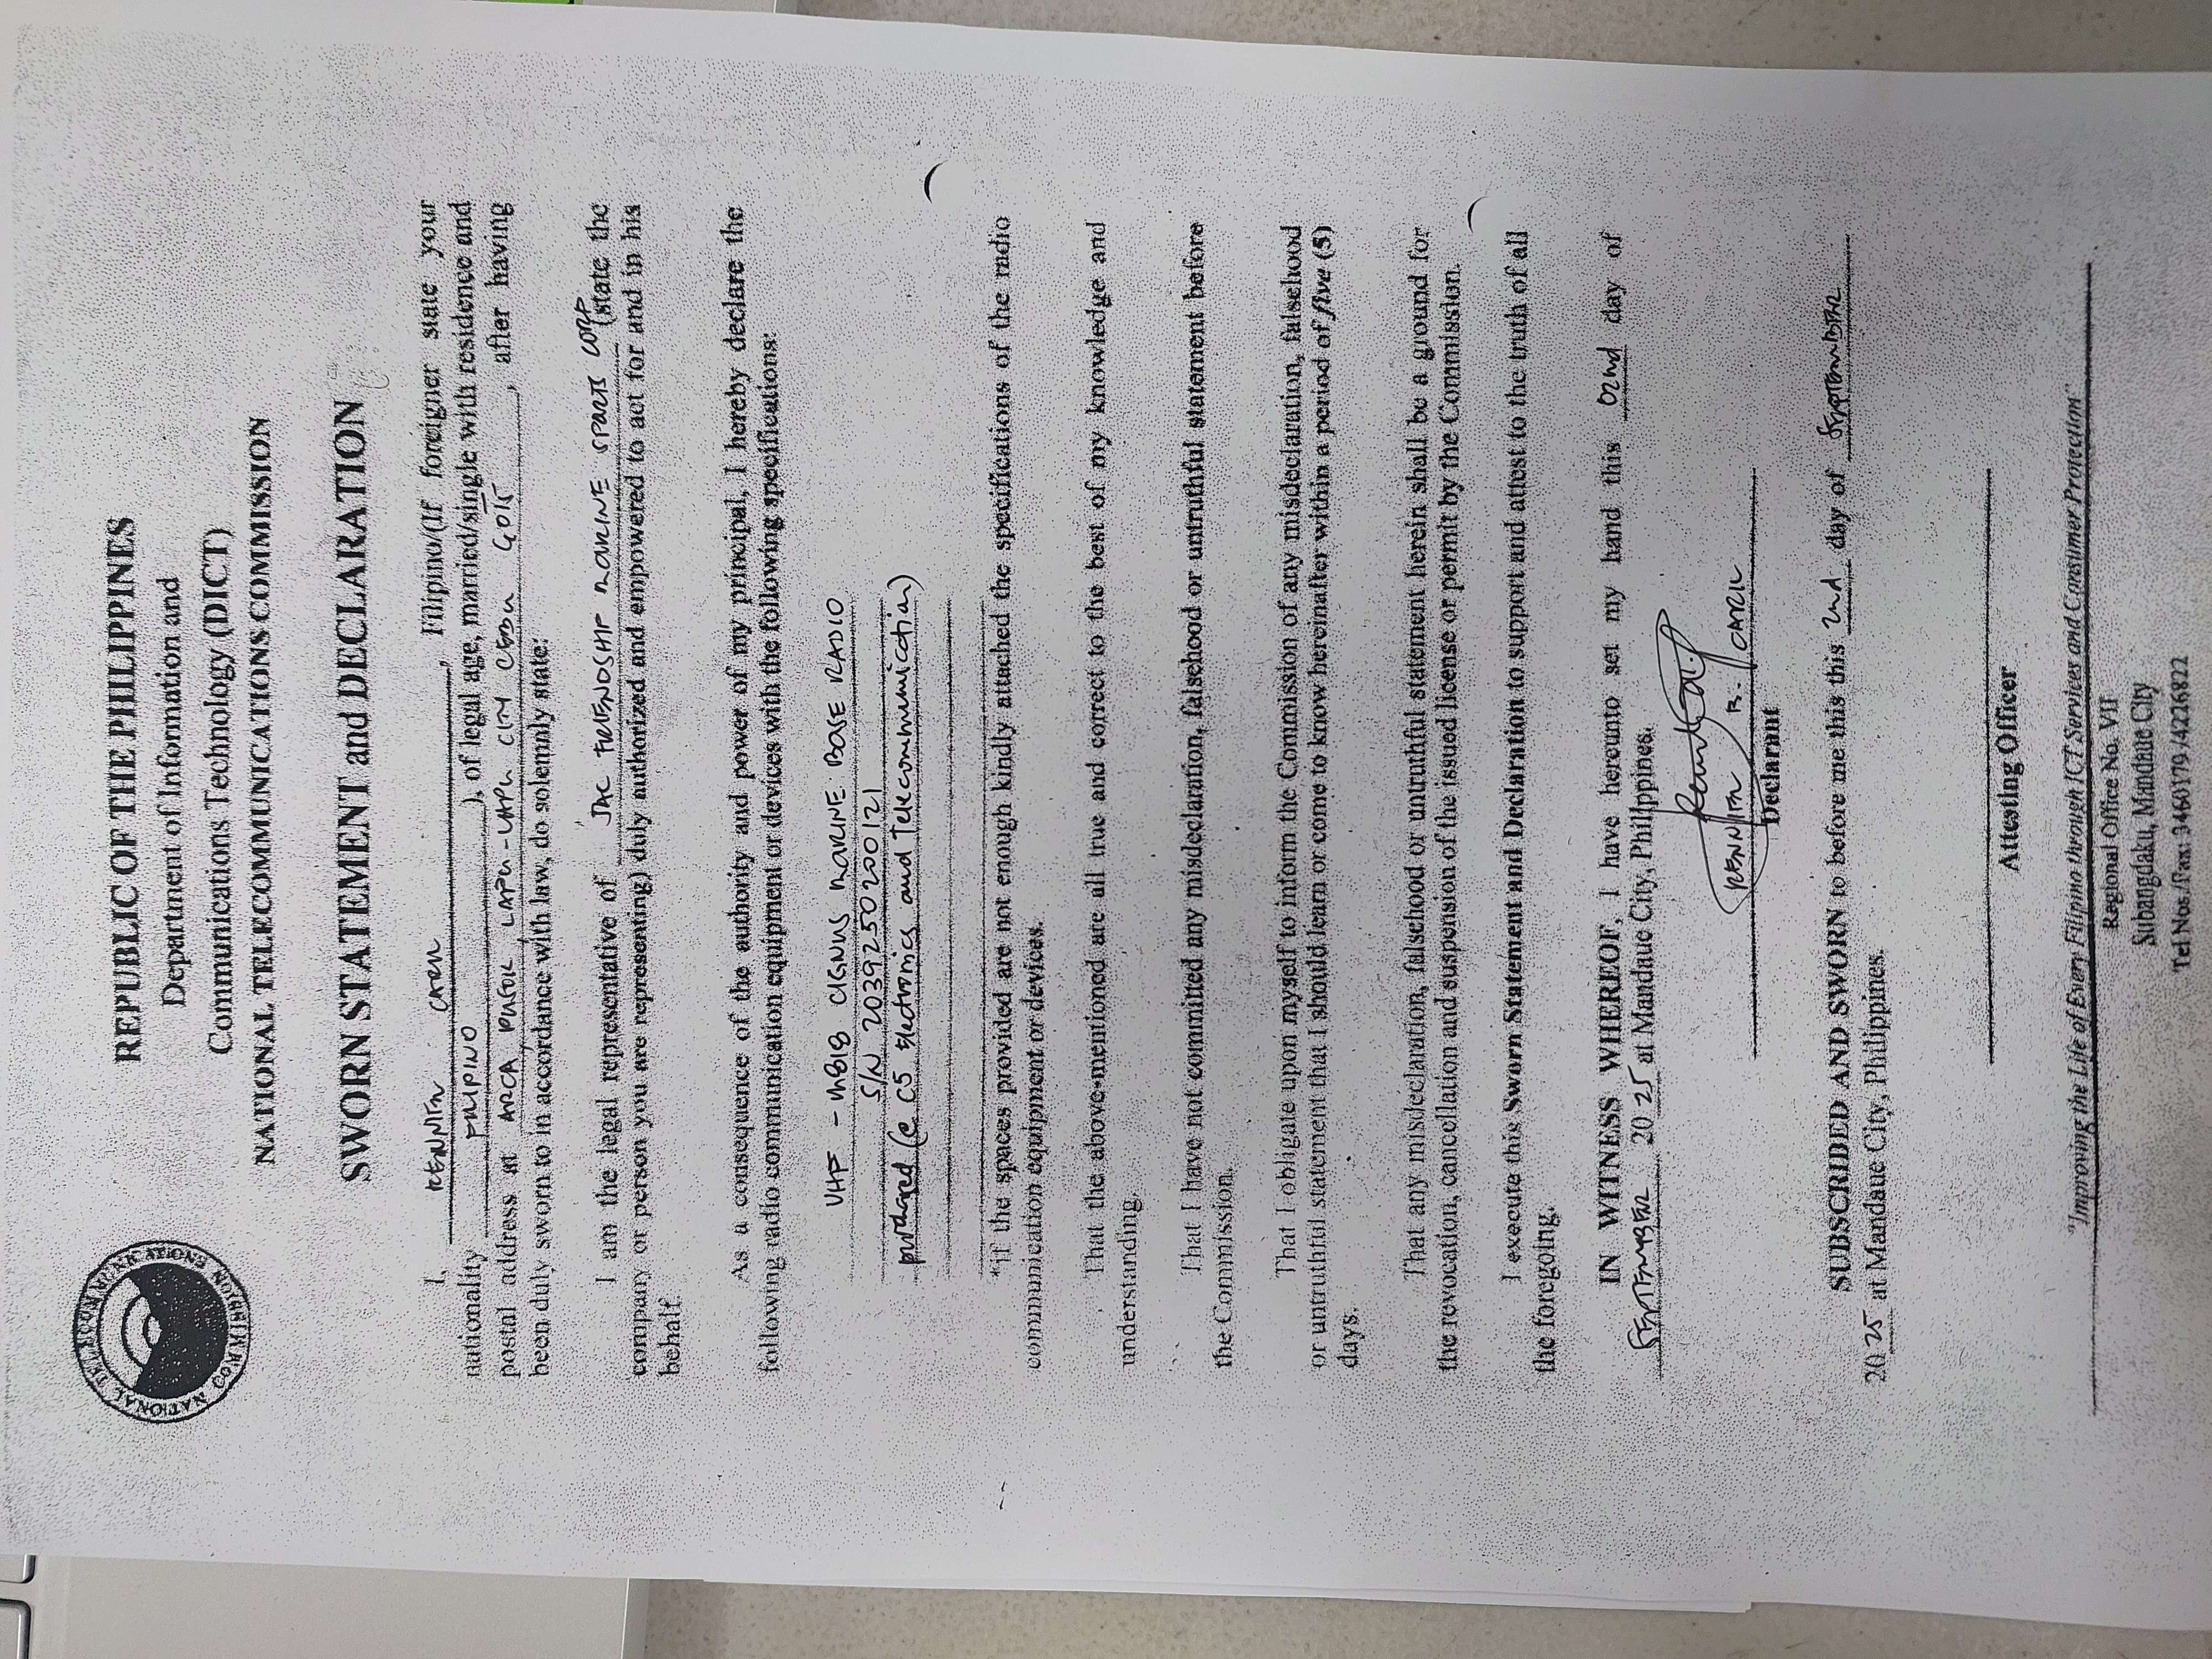 NATIONAL TELECOMMUNICATIONS COMMISSION
REPUBLIC OF THE PHILIPPINES
Department of Information and
Communications Technology (DICT)
NATIONAL TELECOMMUNICATIONS COMMISSION
SWORN STATEMENT and DECLARATION
I, KENNITH, Filipino/(If foreigner state your
nationality FILIPINO), of legal age, married/single with residence and
postal address at ARCA LAPU-LAPU CITY CEBU 6015, after having
been duly sworn to in accordance with law, do solemnly state:
I am the legal representative of JAC MARINE CORP (state the
company or person you are representing) duly authorized and empowered to act for and in his
behalf.
As a consequence of the authority and power of my principal, I hereby declare the
following radio communication equipment or devices with the following specifications:
VHF - MARINE BASE RADIO
S/N 2039250200121
purchased @ C5 Electronics and Telecommunication)
*if the spaces provided are not enough kindly attached the specifications of the radio
communication equipment or devices.
That the above-mentioned are all true and correct to the best of my knowledge and
understanding.
That I have not committed any misdeclaration, falsehood or untruthful statement before
the Commission.
That I obligate upon myself to inform the Commission of any misdeclaration, falsehood
or untruthful statement that I should learn or come to know hereinafter within a period of five (5)
days.
That any misdeclaration, falsehood or untruthful statement herein shall be a ground for
the revocation, cancellation and suspension of the issued license or permit by the Commission.
I execute this Sworn Statement and Declaration to support and attest to the truth of all
the foregoing.
IN WITNESS WHEREOF, I have hereunto set my hand this 02nd day of
SEPTEMBER 2025 at Mandaue City, Philippines.
KENNITH R.
Declarant
SUBSCRIBED AND SWORN to before me this 2nd day of SEPTEMBER
2025 at Mandaue City, Philippines.
Attesting Officer
"Improving the Life of Every Filipino through ICT Services and Consumer Protection"
Regional Office No. VII
Subangdaku, Mandaue City
Tel Nos./Fax: 3460179/4226822